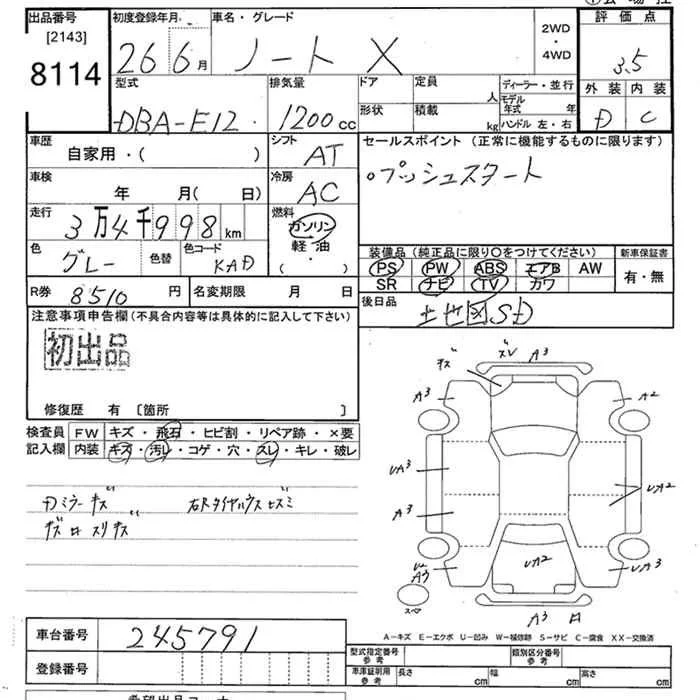 出品番号
[2143]
8114
初度登録年月
26 6月
車名・グレード
ノート X
2WD
・
4WD
評価点
3.5
外装 内装
D C
型式
DBA-E12
排気量
1200cc
ドア
定員
人
ディーラー・並行
形状
積載
kg
モデル年式 年
ハンドル 左・右
車歴
自家用・( )
シフト
AT
セールスポイント (正常に機能するものに限ります)
プッシュスタート
車検
年 月(日)
冷房
AC
走行
3万4千998km
燃料
ガソリン
軽油
・( )
色
グレー
色替
色コード
KAD
装備品(純正品に限り○をつけてください)
PS PW ABS エアB AW
SR ナビ TV カワ
新車保証書
有・無
R券 8510円
名変期限 月 日
後日品
SD
注意事項申告欄(不具合内容等は具体的に記入して下さい)
初出品
修復歴 有 〔箇所 〕
検査員 FW キズ・飛石・ヒビ割・リペア跡・×要
記入欄 内装 キズ・汚レ・コゲ・穴・スレ・キレ・破レ
Dミラーキズ
右Rタイヤハウスヒズミ
キズロ スリキズ
キズ ズレ A3
A3 A2
UA3 UA2
A3
UA2
A3 UA3
スペア
A3 ロ
A-キズ E-エクボ U-凹み W-補修跡 S-サビ C-腐食 XX-交換済
車台番号 245791
登録番号
型式指定番号 参考
類別区分番号 参考
車庫証明用 参考 長さ cm 幅 cm 高さ cm